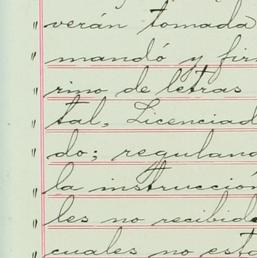 " verán tomada
" mandó y fir
" rino de letras
" tal, Licenciad
" do; reguland
" la instrucción
" les no recibid
" cuales no esta